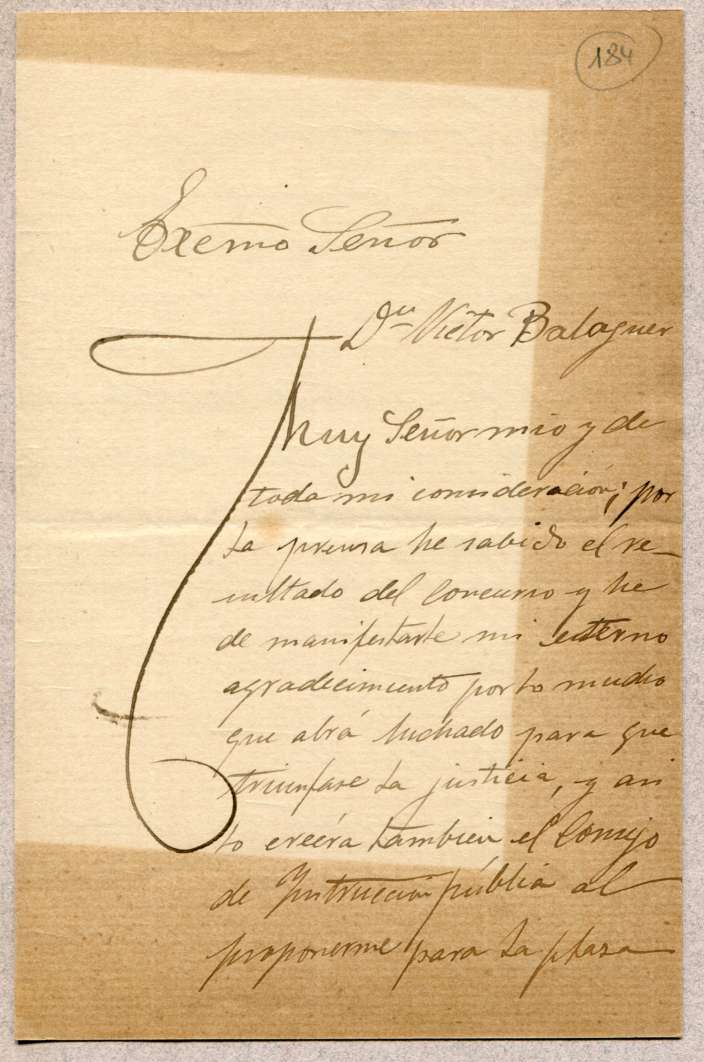 184
Excmo Señor
Dn Victor Balaguer
Muy Señor mio y de
toda mi consideración; por
la prensa he sabido el re-
sultado del concurso y he
de manifestarle mi eterno
agradecimiento por lo mucho
que abrá luchado para que
triunfase la justicia, y asi
lo creéra tambien el Consejo
de Instrucción pública al
proponerme para la plaza